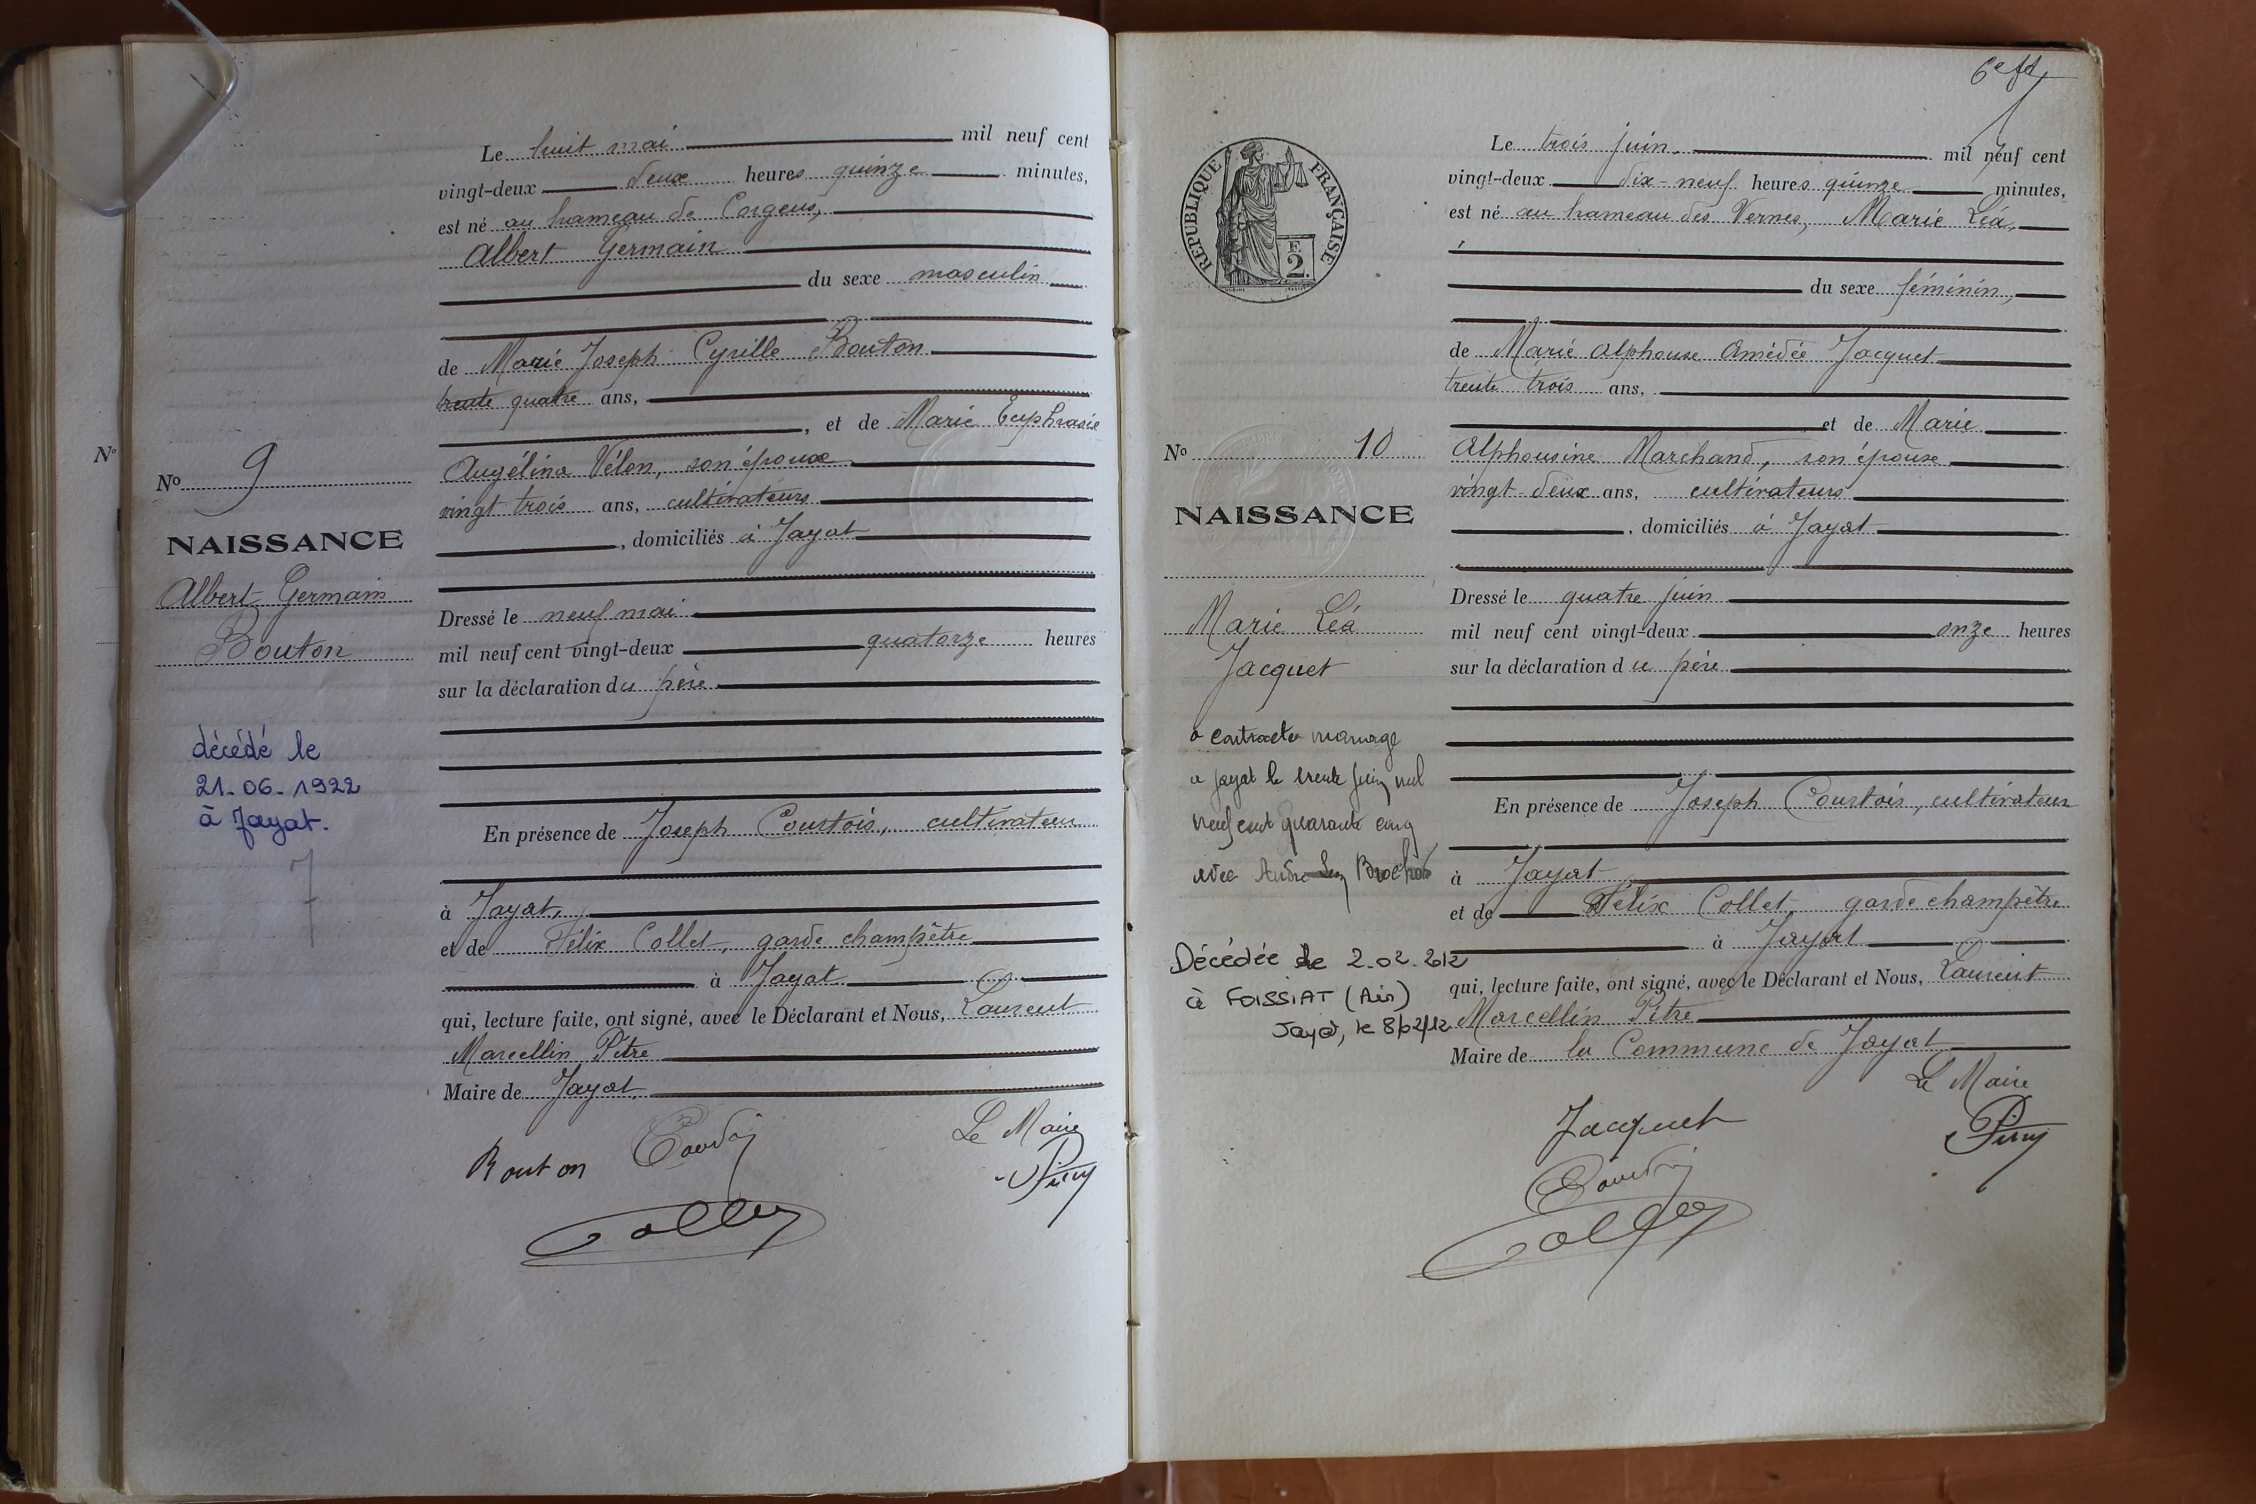 Le huit mai mil neuf cent
vingt-deux deux heures quinze minutes,
est né au hameau de Corgeus,
Albert Germain
du sexe masculin
de Marie Joseph Cyrille Bouton
trente quatre ans,
, et de Marie Euphrasie
Angélina Vélon, son épouse
vingt trois ans, cultivateurs
, domiciliés à Jayat
Dressé le neuf mai
mil neuf cent vingt-deux quatorze heures
sur la déclaration du père
En présence de Joseph Courtois, cultivateur
à Jayat,
et de Félix Collet, garde champêtre
à Jayat
qui, lecture faite, ont signé, avec le Déclarant et Nous, Laurent
Marcellin Pitre
Maire de Jayat,
Le Maire
Bouton
Collet
No
No 9
NAISSANCE
Albert Germain
Bouton
décédé le
21-06-1922
à Jayat.
Le trois juin mil neuf cent
vingt-deux dix-neuf heures quinze minutes,
est né au hameau des Vernes, Marie Léa,
du sexe féminin,
de Marie Alphonse Amédée Jacquet
trente trois ans,
et de Marie
Alphonsine Marchand, son épouse
vingt-deux ans, cultivateurs
, domiciliés à Jayat
Dressé le quatre juin
mil neuf cent vingt-deux onze heures
sur la déclaration du père
En présence de Joseph Courtois, cultivateur
à Jayat
et de Félix Collet, garde champêtre
à Jayat
qui, lecture faite, ont signé, avec le Déclarant et Nous, Laurent
Marcellin Pitre
Maire de la Commune de Jayat
Le Maire
Jacquet
Collet
RÉPUBLIQUE FRANÇAISE
F.
2.
No 10
NAISSANCE
Marie Léa
Jacquet
a contracté mariage
a Jayat le trente juin mil
neuf cent quarante cinq
avec André Brochot
Décédée le 2.02.2012
à FOISSIAT (Ain)
Jayat, le 8/02/12